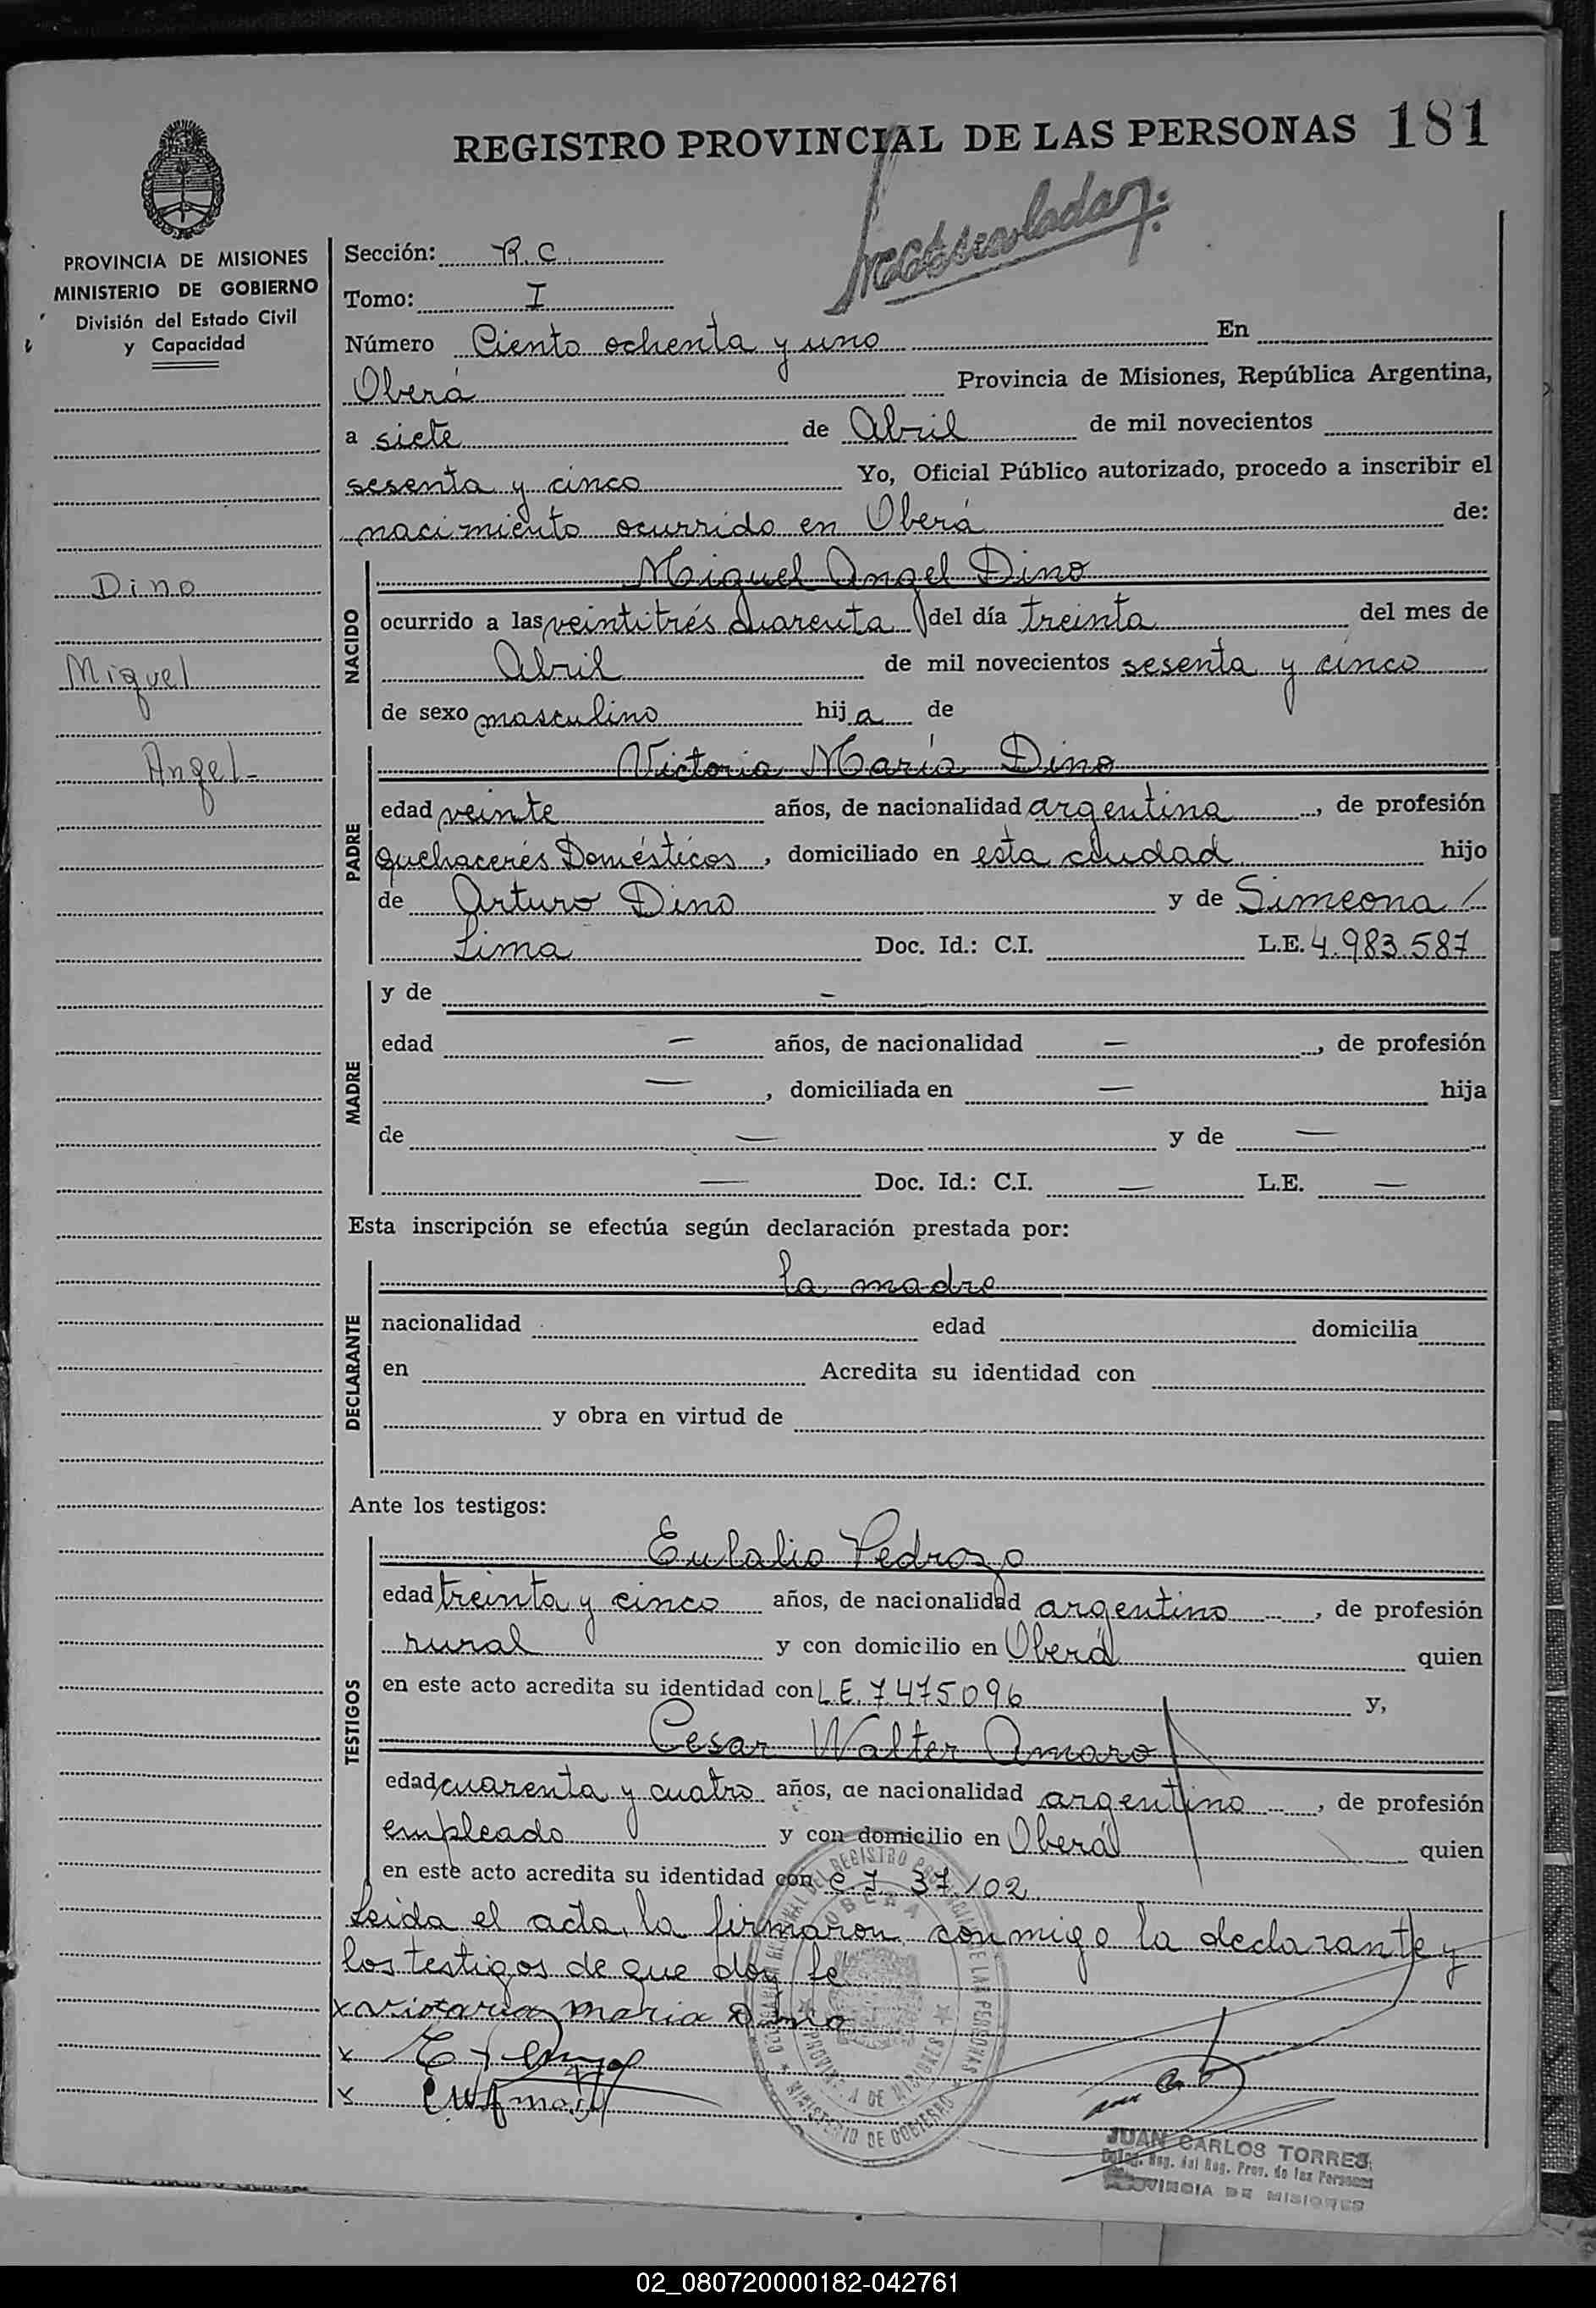 REGISTRO PROVINCIAL DE LAS PERSONAS 181
PROVINCIA DE MISIONES
MINISTERIO DE GOBIERNO
División del Estado Civil
y Capacidad
Dino
Miguel
Angel-
Sección: R.C.
Tomo: I
Número Ciento ochenta y uno En
Oberá Provincia de Misiones, República Argentina,
a siete de Abril de mil novecientos
sesenta y cinco Yo, Oficial Público autorizado, procedo a inscribir el
nacimiento ocurrido en Oberá de:
NACIDO
Miguel Angel Dino
ocurrido a las veintitrés cuarenta del día treinta del mes de
Abril de mil novecientos sesenta y cinco
de sexo masculino hij a de
PADRE
Victoria María Dino
edad veinte años, de nacionalidad argentina, de profesión
quehaceres Domésticos, domiciliado en esta ciudad hijo
de Arturo Dino y de Simeona /
Lima Doc. Id.: C.I. L.E. 4.983.587
MADRE
y de —
edad — años, de nacionalidad —, de profesión
—, domiciliada en — hija
de — y de —
— Doc. Id.: C.I. — L.E. —
Esta inscripción se efectúa según declaración prestada por:
DECLARANTE
la madre
nacionalidad edad domicilia
en Acredita su identidad con
y obra en virtud de
Ante los testigos:
TESTIGOS
Eulalio Pedrozo
edad treinta y cinco años, de nacionalidad argentino, de profesión
rural y con domicilio en Oberá quien
en este acto acredita su identidad con L.E. 7475096 y,
Cesar Walter Amaro
edad cuarenta y cuatro años, de nacionalidad argentino, de profesión
empleado y con domicilio en Oberá quien
en este acto acredita su identidad con C.I 37.102
Leida el acta, la firmaron conmigo la declarante y
los testigos de que doy fe
x maria Dino
x
x
OBERA
PROVINCIA DE MISIONES
MINISTERIO DE GOBIERNO
JUAN CARLOS TORRES
Deleg. Reg. del Reg. Prov. de las Personas
PROVINCIA DE MISIONES
02_080720000182-042761